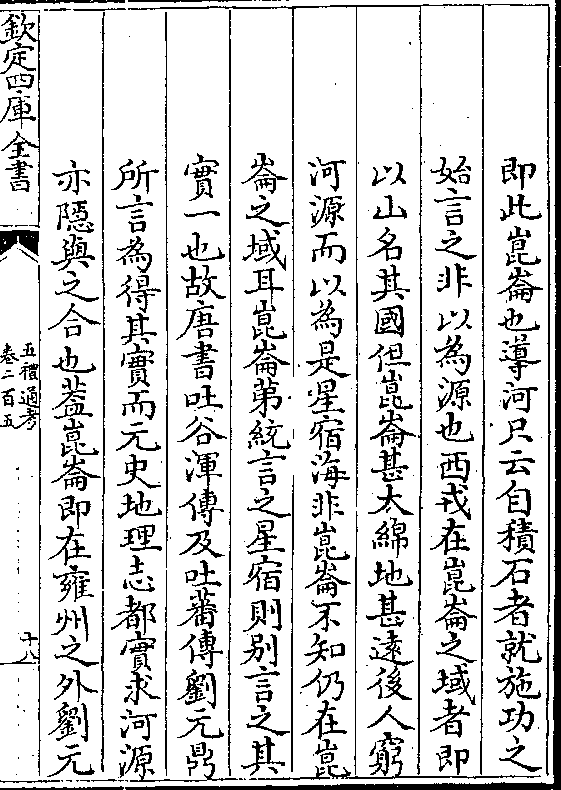 即此崑崙也導河只云自積石者就施功之
始言之非以為源也西戎在崑崙之域者即
以山名其國但崑崙甚大綿地甚遠後人窮
河源而以為是星宿海非崑崙不知仍在崑
崙之域耳崑崙第統言之星宿則别言之其
實一也故唐書吐谷渾傳及吐蕃傳劉元鼎
所言為得其實而元史地理志都實求河源
亦隱與之合也葢崑崙即在雍州之外劉元
欽定四庫全書
五禮通考
卷二百五
十八